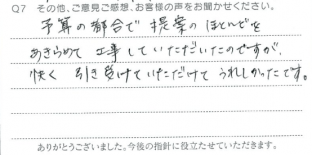 Q7 その他、ご意見ご感想、お客様の声をお聞かせください。
予算の都合で 提案の ほとんどを
あきらめて 工事していただいたのですが、
快く 引き受けていただけて うれしかったです。
ありがとうございました。今後の指針に役立たせていただきます。